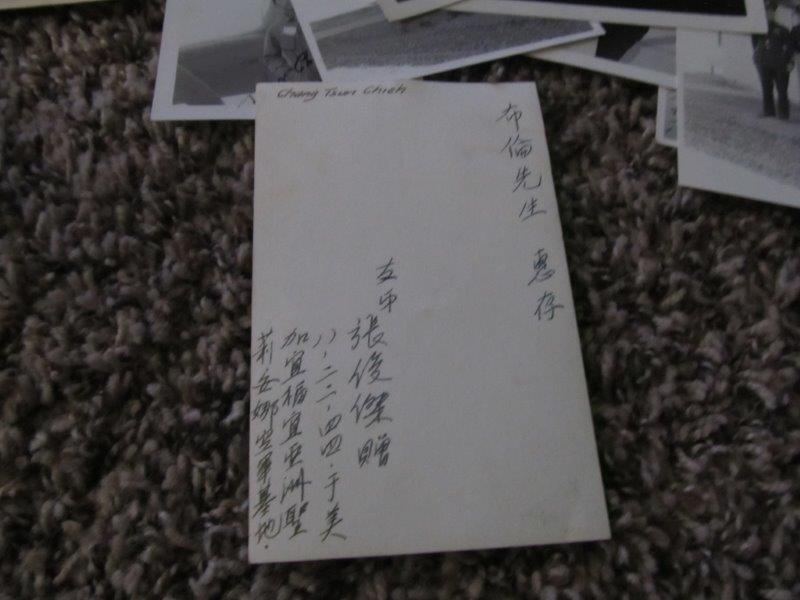 Chang Tsun Chieh
布倫先生 惠存
友弟
張俊傑贈
八·二二·四四·于美
加宜福宜亞洲聖
莉安娜空軍基地·